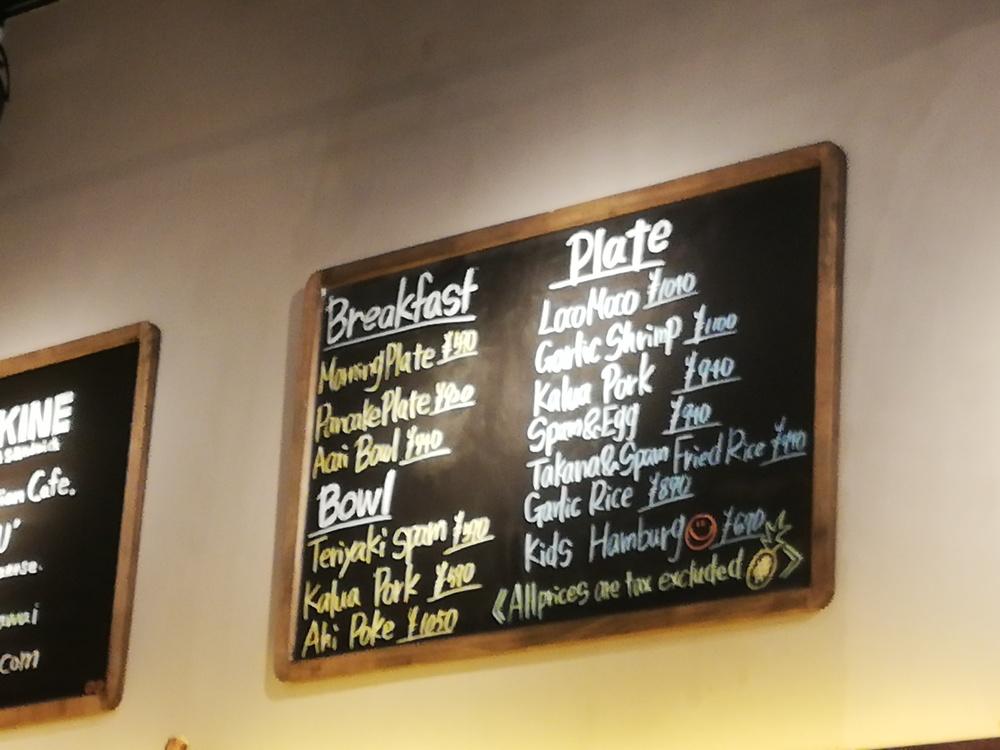 KINE
Cafe.
com
Breakfast
Morning Plate
Pancake Plate
Acai Bowl
Bowl
Teriyaki Spam
Kalua Pork ¥590
Ahi Poke ¥1050
Plate
LocoMoco ¥1040
Garlic Shrimp ¥1100
Kalua Pork ¥940
Spam&Egg ¥940
Takana&Spam Fried Rice
Garlic Rice ¥890
Kids Hamburg ¥690
All prices are tax excluded